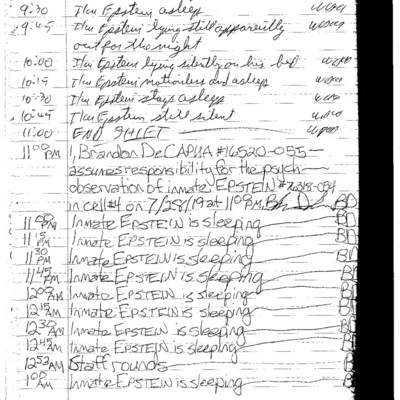 9:30 I/m Epstein asleep
9:45 I/m Epstein lying still apparently
out for the night
10:00 I/m Epstein lying silently on his bed
10:15 I/m Epstein motionless and asleep
10:30 I/m Epstein stays asleep
10:45 I/m Epstein still silent
11:00 END SHIFT
11:00 PM I, Brandon DeCAPUA #16520-055-
assumes responsibility for the psych
observation of inmate EPSTEIN #76318-054
in cell #4 on 7/28/19 at 11:0 P.M. BD
11:00 PM Inmate EPSTEIN is sleeping BD
11:15 PM Inmate EPSTEIN is sleeping BD
11:30 PM Inmate EPSTEIN is sleeping BD
11:45 PM Inmate EPSTEIN is sleeping BD
12:00 AM Inmate EPSTEIN is sleeping BD
12:15 AM Inmate EPSTEIN is sleeping BD
12:30 AM Inmate EPSTEIN is sleeping BD
12:45 AM Inmate EPSTEIN is sleeping BD
12:53 AM Staff rounds BD
1:00 AM Inmate EPSTEIN is sleeping BD